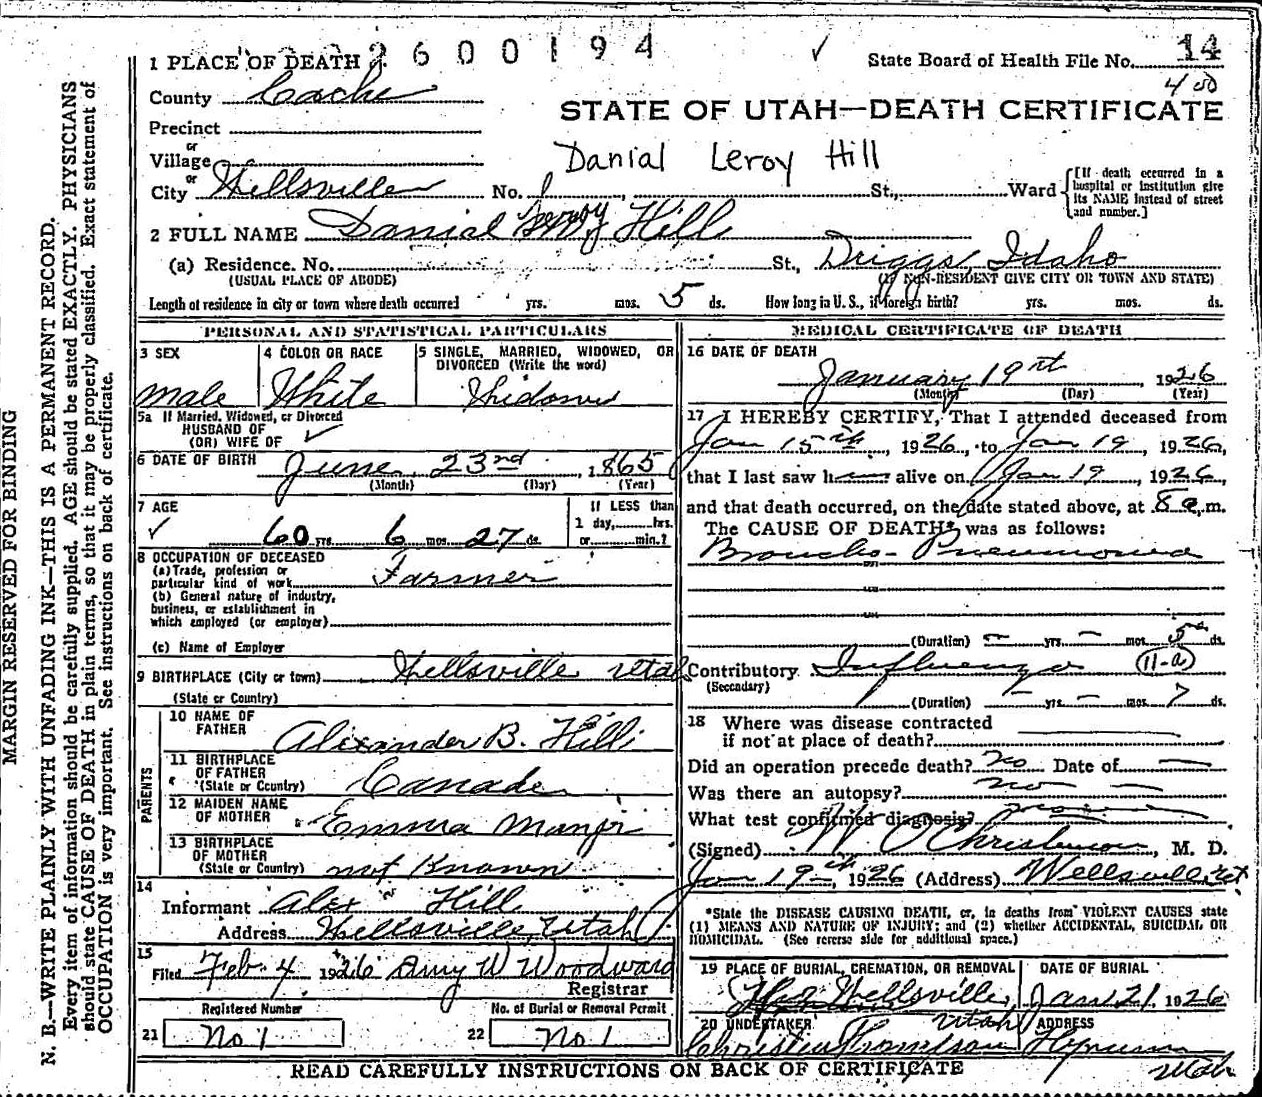 2600194
State Board of Health File No. 14
400
1 PLACE OF DEATH
County Cache
STATE OF UTAH—DEATH CERTIFICATE
Precinct
or
Village
Danial Leroy Hill
or
City Wellsville No. St., Ward
[If death occurred in a hospital or institution give its NAME instead of street and number.]
2 FULL NAME Danial Leroy Hill
(a) Residence. No. St., Driggs, Idaho
(USUAL PLACE OF ABODE) (IF NON-RESIDENT GIVE CITY OR TOWN AND STATE)
Length of residence in city or town where death occurred yrs. mos. 5 ds. How long in U. S., if foreign birth? yrs. mos. ds.
PERSONAL AND STATISTICAL PARTICULARS
3 SEX
male
4 COLOR OR RACE
White
5 SINGLE, MARRIED, WIDOWED, OR DIVORCED (Write the word)
Widowed
5a If Married, Widowed, or Divorced
HUSBAND OF
(OR) WIFE OF
6 DATE OF BIRTH June 23rd, 1865
(Month) (Day) (Year)
7 AGE
60 yrs. 6 mos. 27 ds.
If LESS than
1 day, hrs.
or min.?
8 OCCUPATION OF DECEASED
(a) Trade, profession or
particular kind of work Farmer
(b) General nature of industry,
business, or establishment in
which employed (or employer)
(c) Name of Employer
9 BIRTHPLACE (City or town) Wellsville Utah
(State or Country)
PARENTS
10 NAME OF FATHER Alexander B. Hill
11 BIRTHPLACE OF FATHER
(State or Country) Canada
12 MAIDEN NAME OF MOTHER Emma
13 BIRTHPLACE OF MOTHER
(State or Country) not Known
14
Informant Alex Hill
Address Wellsville, Utah
15
Filed Feb. 4 1926 Amy W Woodward
Registrar
Registered Number
21 No 1
No. of Burial or Removal Permit
22 No 1
MEDICAL CERTIFICATE OF DEATH
16 DATE OF DEATH
January 19, 1926
(Month) (Day) (Year)
17 I HEREBY CERTIFY, That I attended deceased from
Jan 15th, 1926, to Jan 19, 1926,
that I last saw h alive on Jan 19, 1926,
and that death occurred, on the date stated above, at 8 a.m.
The CAUSE OF DEATH* was as follows:
Broncho-Pneumonia
(Duration) — yrs. — mos. 5 ds.
Contributory Influenza (11-a)
(Secondary)
(Duration) — yrs. — mos. 7 ds.
18 Where was disease contracted
if not at place of death?
Did an operation precede death? no Date of —
Was there an autopsy? no —
What test confirmed diagnosis?
(Signed) W O Christensen, M. D.
Jan 19th, 1926 (Address) Wellsville, Ut
*State the DISEASE CAUSING DEATH, or, in deaths from VIOLENT CAUSES state
(1) MEANS AND NATURE OF INJURY; and (2) whether ACCIDENTAL, SUICIDAL OR
HOMICIDAL. (See reverse side for additional space.)
19 PLACE OF BURIAL, CREMATION, OR REMOVAL
Wellsville, Utah
DATE OF BURIAL
Jan 21, 1926
20 UNDERTAKER
ADDRESS
Hyrum Utah
READ CAREFULLY INSTRUCTIONS ON BACK OF CERTIFICATE
MARGIN RESERVED FOR BINDING
N. B.—WRITE PLAINLY WITH UNFADING INK—THIS IS A PERMANENT RECORD.
Every item of information should be carefully supplied. AGE should be stated EXACTLY. PHYSICIANS
should state CAUSE OF DEATH in plain terms, so that it may be properly classified. Exact statement of
OCCUPATION is very important. See instructions on back of certificate.